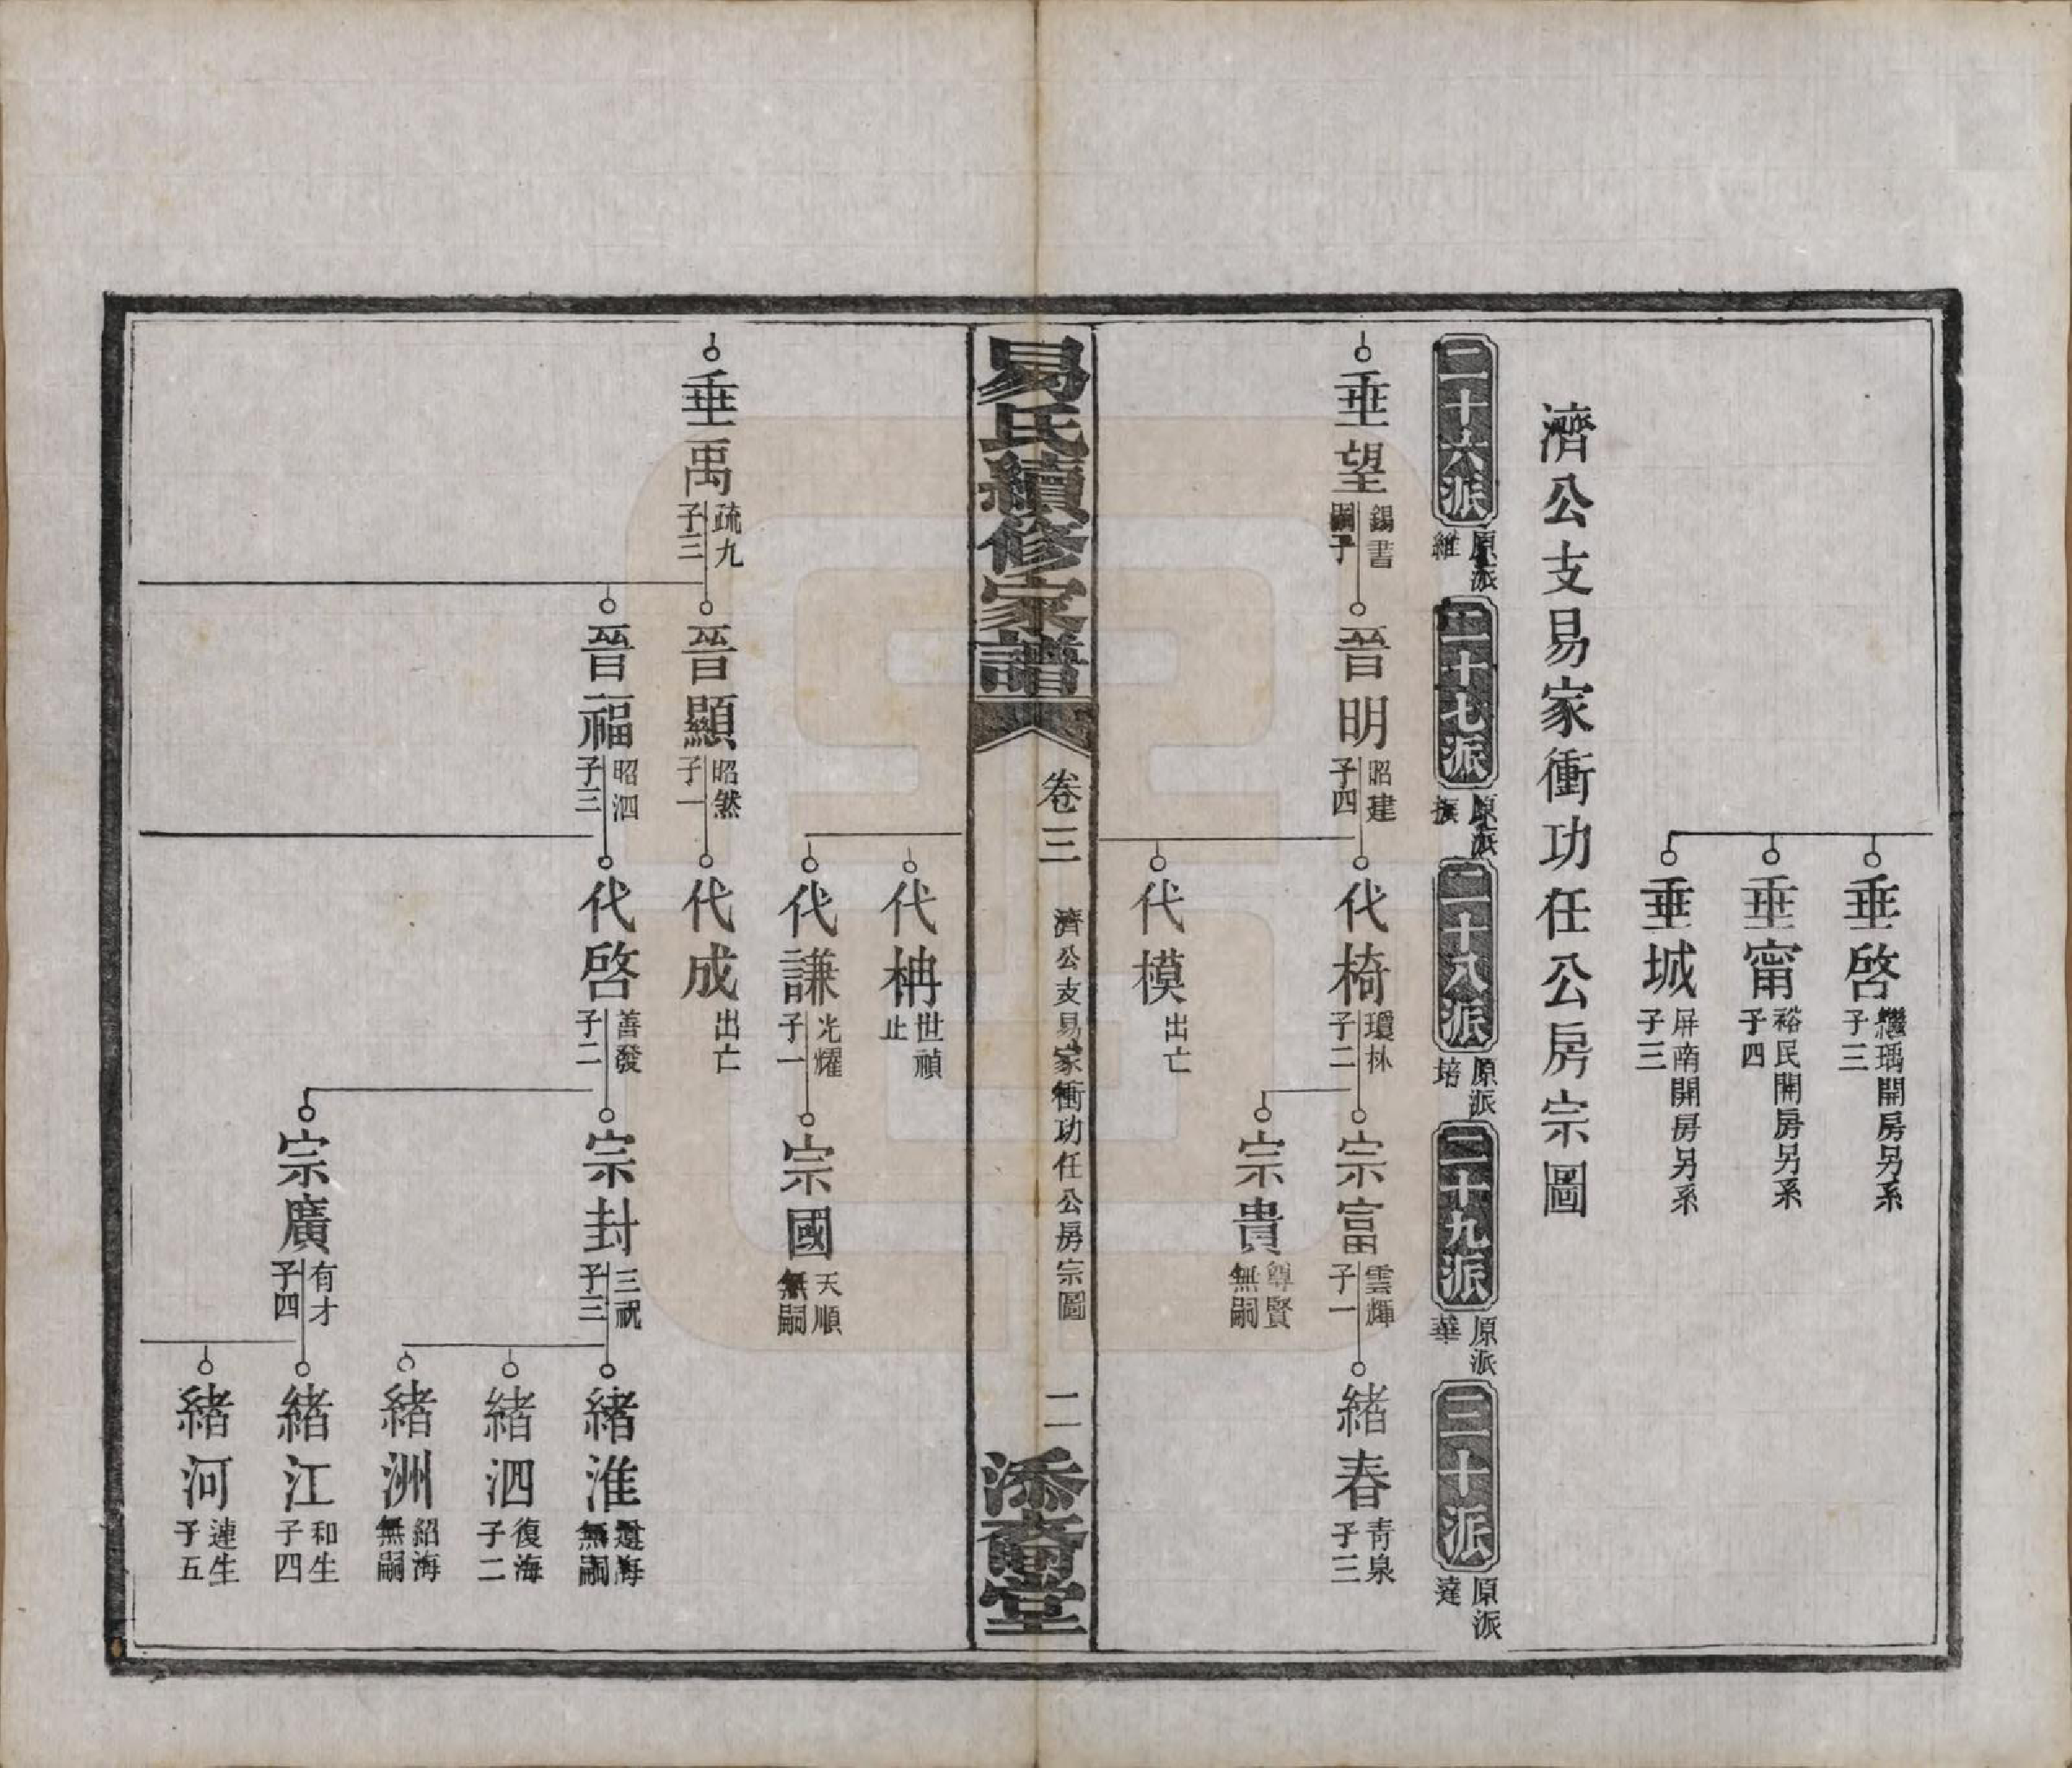 垂啓 繼瑀開房另系 子三
垂甯 裕民開房另系 子四
垂城 屏南開房另系 子三
濟公支易家衝功任公房宗圖
二十六派 原派維
二十七派 原派振
二十八派 原派培
二十九派 原派華
三十派 原派達
垂望 錫書 嗣子
晉明 昭建 子四
代椅 瓊林 子二
宗富 雲輝 子一
緒春 青泉 子三
宗貴 尊賢 無嗣
代模 出亡
易氏續修家譜
卷三
濟公支易家衝功任公房宗圖
二
添裔堂
代柟 世禎 止
代謙 光耀 子一
宗國 天順 無嗣
垂禹 疏九 子三
晉顯 昭然 子一
代成 出亡
晉福 昭泗 子三
代啓 善發 子二
宗封 三祝 子三
緒淮 海 無嗣
緒泗 復海 子二
緒洲 紹海 無嗣
宗廣 有才 子四
緒江 和生 子四
緒河 漣生 子五